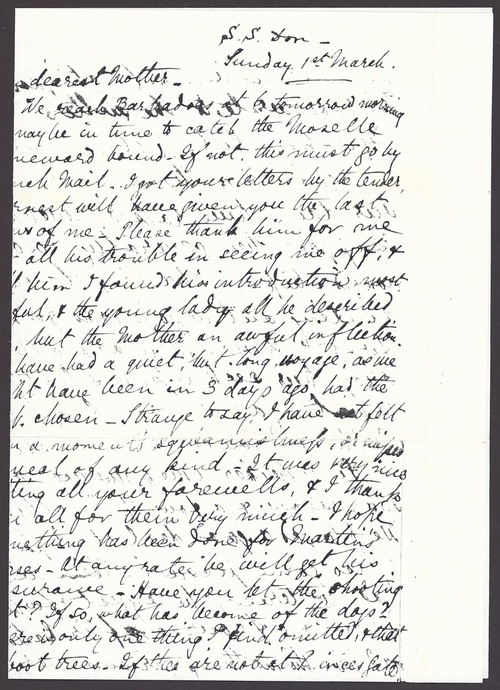 S.S. Don -
Sunday 1st March.
dearest Mother -
We reach Barbadoes at 6 tomorrow morning
maybe in time to catch the Moselle
meward bound. If not, this must go by
nch Mail. I got your letters by the tender,
rnest will have given you the last
ws of me. Please thank him for me
all his trouble in seeing me off, &
l him I found his introduction most
ful, & the young lady all he described
but the Mother an awful infliction.
have had a quiet, but long voyage, as we
ht have been in 3 days ago, had the
p. chosen - Strange to say, I have not felt
a moments squeamishness, or
meal of any kind. It was very nice
ting all your farewells, & I thank
all for them very much - I hope
mething has been done for
ses - At any rate he will get his
surance - Have you let the shooting
t? If so, what has become of the dogs?
ere is only one thing I find omitted, & that
boot trees. If they are not at